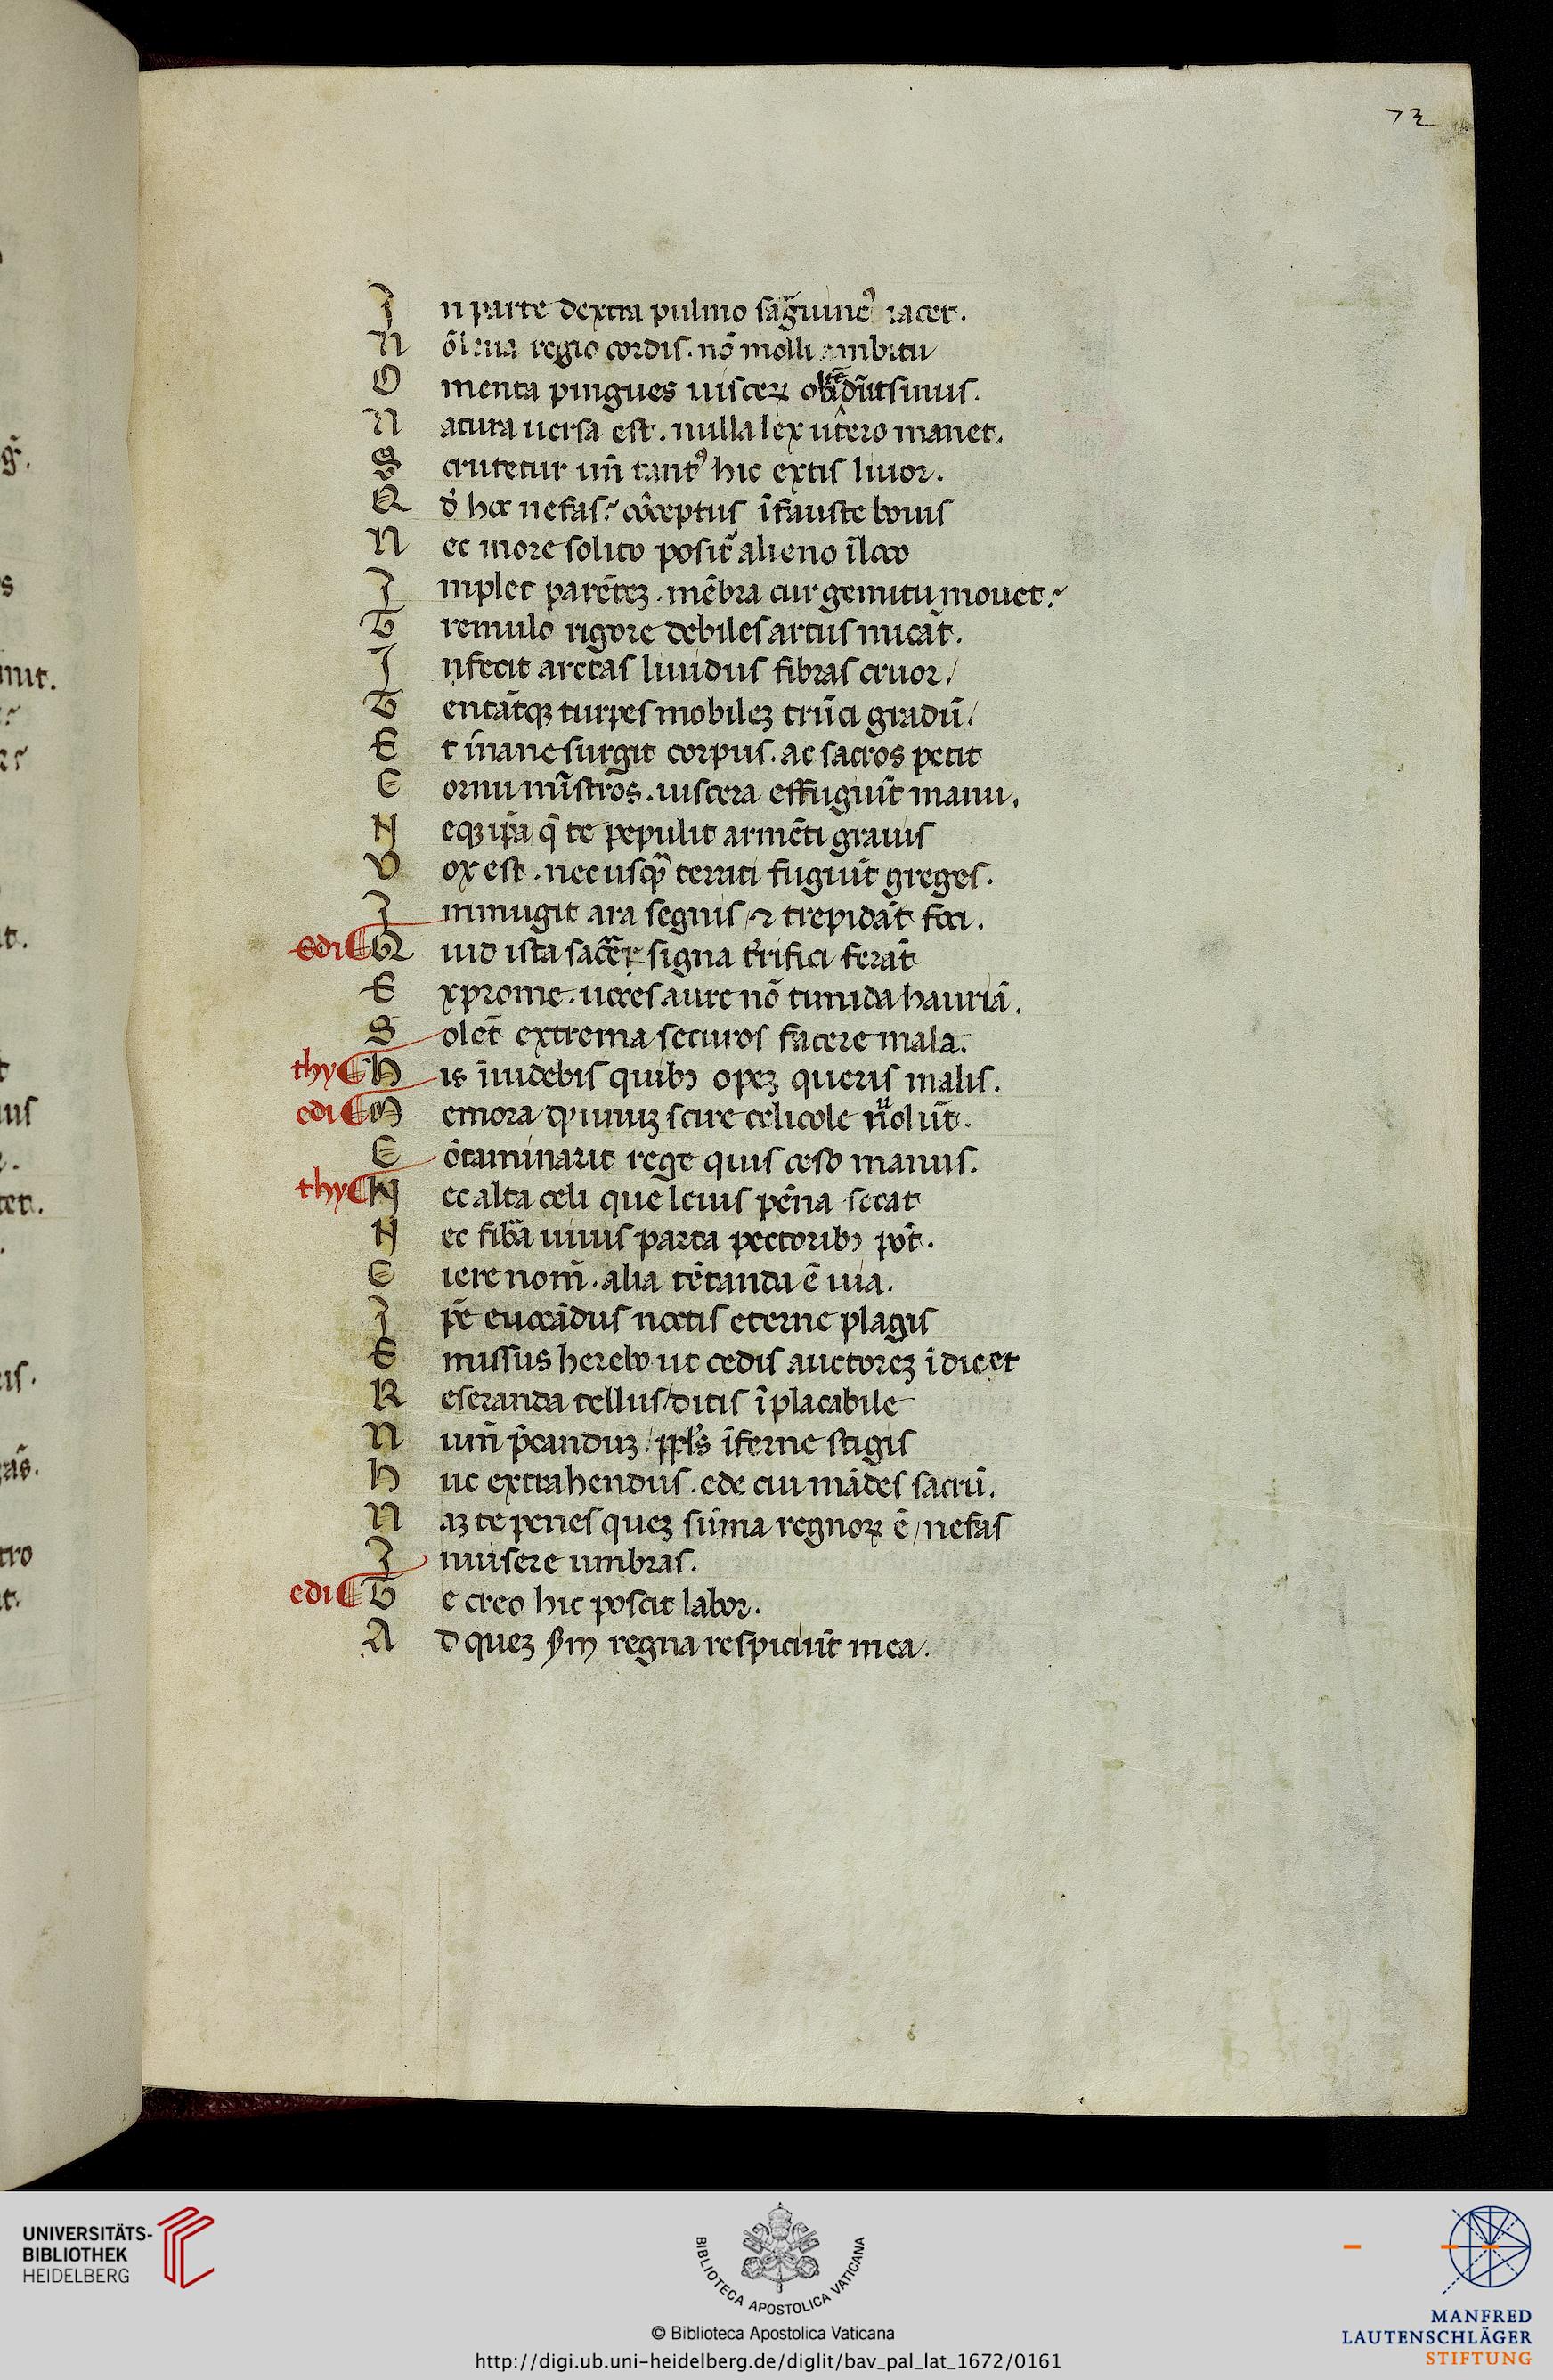 73
In parte dextra pulmo sãguine⁹ iacet.
Nõ leua regio cordis. nõ molli ambitu
Omenta pingues uisceꝝ obdũt sinus.
Natura uersa est. nulla lex utero manet.
Scrutetur uñ tant⁹ hic extis liuor.
Qd hoc nefas? cõceptus ĩfauste bouis
Nec more solito posit᷑ alieno ĩ loco
Implet parẽteꝫ. mẽbra cur gemitu mouet?
Tremulo rigore debiles artus micãt.
Infecit arctas liuidus fibras cruor/
Tentãtqꝫ turpes mobileꝫ trũci gradũ/
Et ĩnane surgit corpus. ac sacros petit
Cornu mĩstros. uiscera effugiũt manu.
Neqꝫ ipã q̃ te pepulit armẽti grauis
Vox est. nec usqᷓ territi fugiũt greges.
Immugit ara segnis / ⁊ trepidãt foci.
edi Quid ista sacr̃ signa t̃rifici ferãt
Exprome. uoces aure nõ timida hauriã.
Solẽt extrema securos facere mala.
thy His ĩuidebis quibꝫ opeꝫ queris malis.
edi Memora qꝫ unuꝫ scire celicole uolũt.
Cõtaminarit rege quis ceso manus.
thy Nec alta celi que leuis pẽna secat
Nec fibã uiuis parta pectoribꝫ põt.
Ciere nom̃. alia tẽtanda ẽ uia.
Ipẽ euocãdus noctis eterne plagis
Emissus herebo ut cedis auctoreꝫ ĩdicet
Reseranda tellus / ditis ĩplacabile
Num̃ p̃canduꝫ. ppl̃s ĩferne stigis
Huc extrahendus. ede cui mãdes sacrũ.
Naꝫ te penes queꝫ sũma regnoꝝ ẽ / nefas
Inuisere umbras.
edi Te creo hic poscit labor.
Ad queꝫ sm̃ regna respiciũt mea.
UNIVERSITÄTS-
BIBLIOTHEK
HEIDELBERG
BIBLIOTECA APOSTOLICA VATICANA
© Biblioteca Apostolica Vaticana
http://digi.ub.uni-heidelberg.de/diglit/bav_pal_lat_1672/0161
MANFRED
LAUTENSCHLÄGER
STIFTUNG